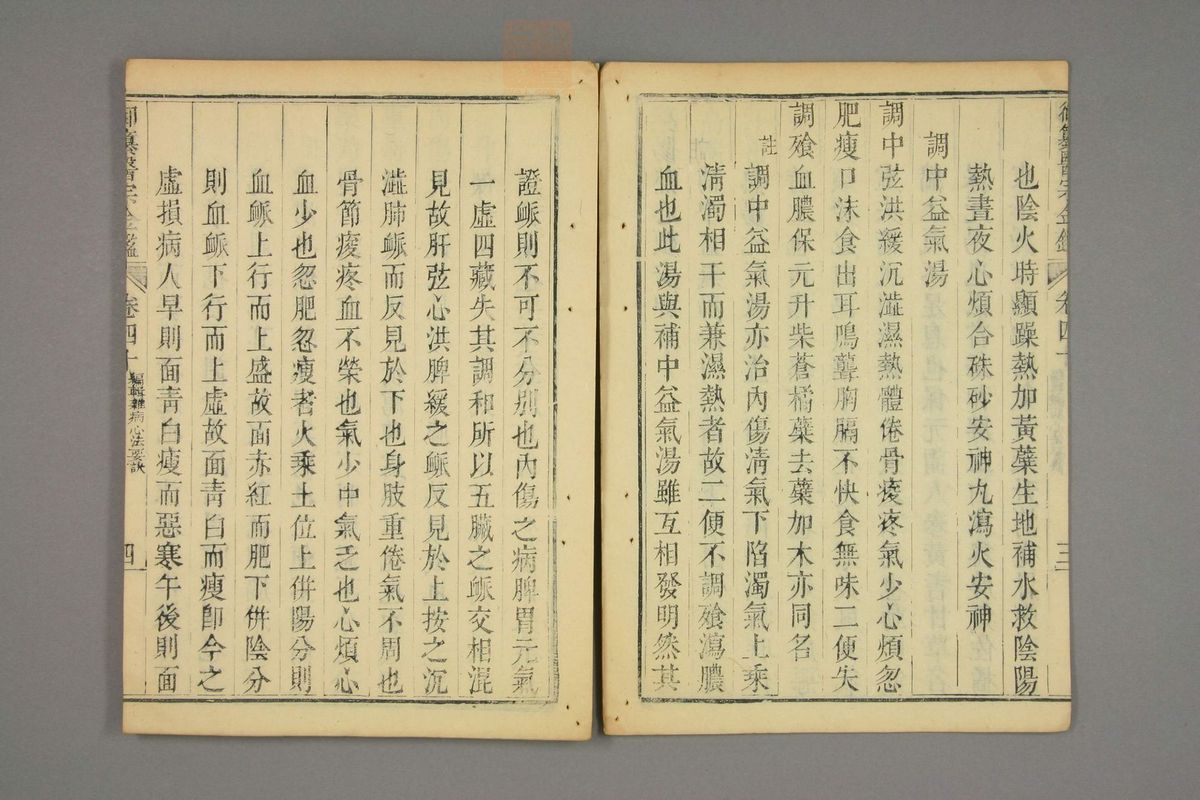 御纂醫宗金鑑 卷四十 三
也陰火時顯躁熱加黃蘗生地補水救陰陽
熱晝夜心煩合硃砂安神九瀉火安神
調中益氣湯
調中弦洪緩沉澁濕熱體倦骨痠疼氣少心煩忽
肥瘦口沫食出耳鳴聾胸膈不快食無味二便失
調飱血膿保元升柴蒼橘蘗去蘗加木亦同名
註調中益氣湯亦治內傷清氣下陷濁氣上乘
清濁相干而兼濕熱者故二便不調飱瀉膿
血也此湯與補中益氣湯雖互相發明然其
證脈則不可不分別也內傷之病脾胃元氣
一虛四藏失其調和所以五臟之脈交相混
見故肝弦心洪脾緩之脈反見於上按之沉
澁肺脈而反見於下也身肢重倦氣不周也
骨節痠疼血不榮也氣少中氣乏也心煩心
血少也忽肥忽瘦者火乘土位上併陽分則
血脈上行而上盛故面赤紅而肥下併陰分
則血脈下行而上虛故面青白而瘦卽今之
虛損病人早則面青白瘦而惡寒午後則面
御纂醫宗金鑑 卷四十 編輯雜病心法要訣 四